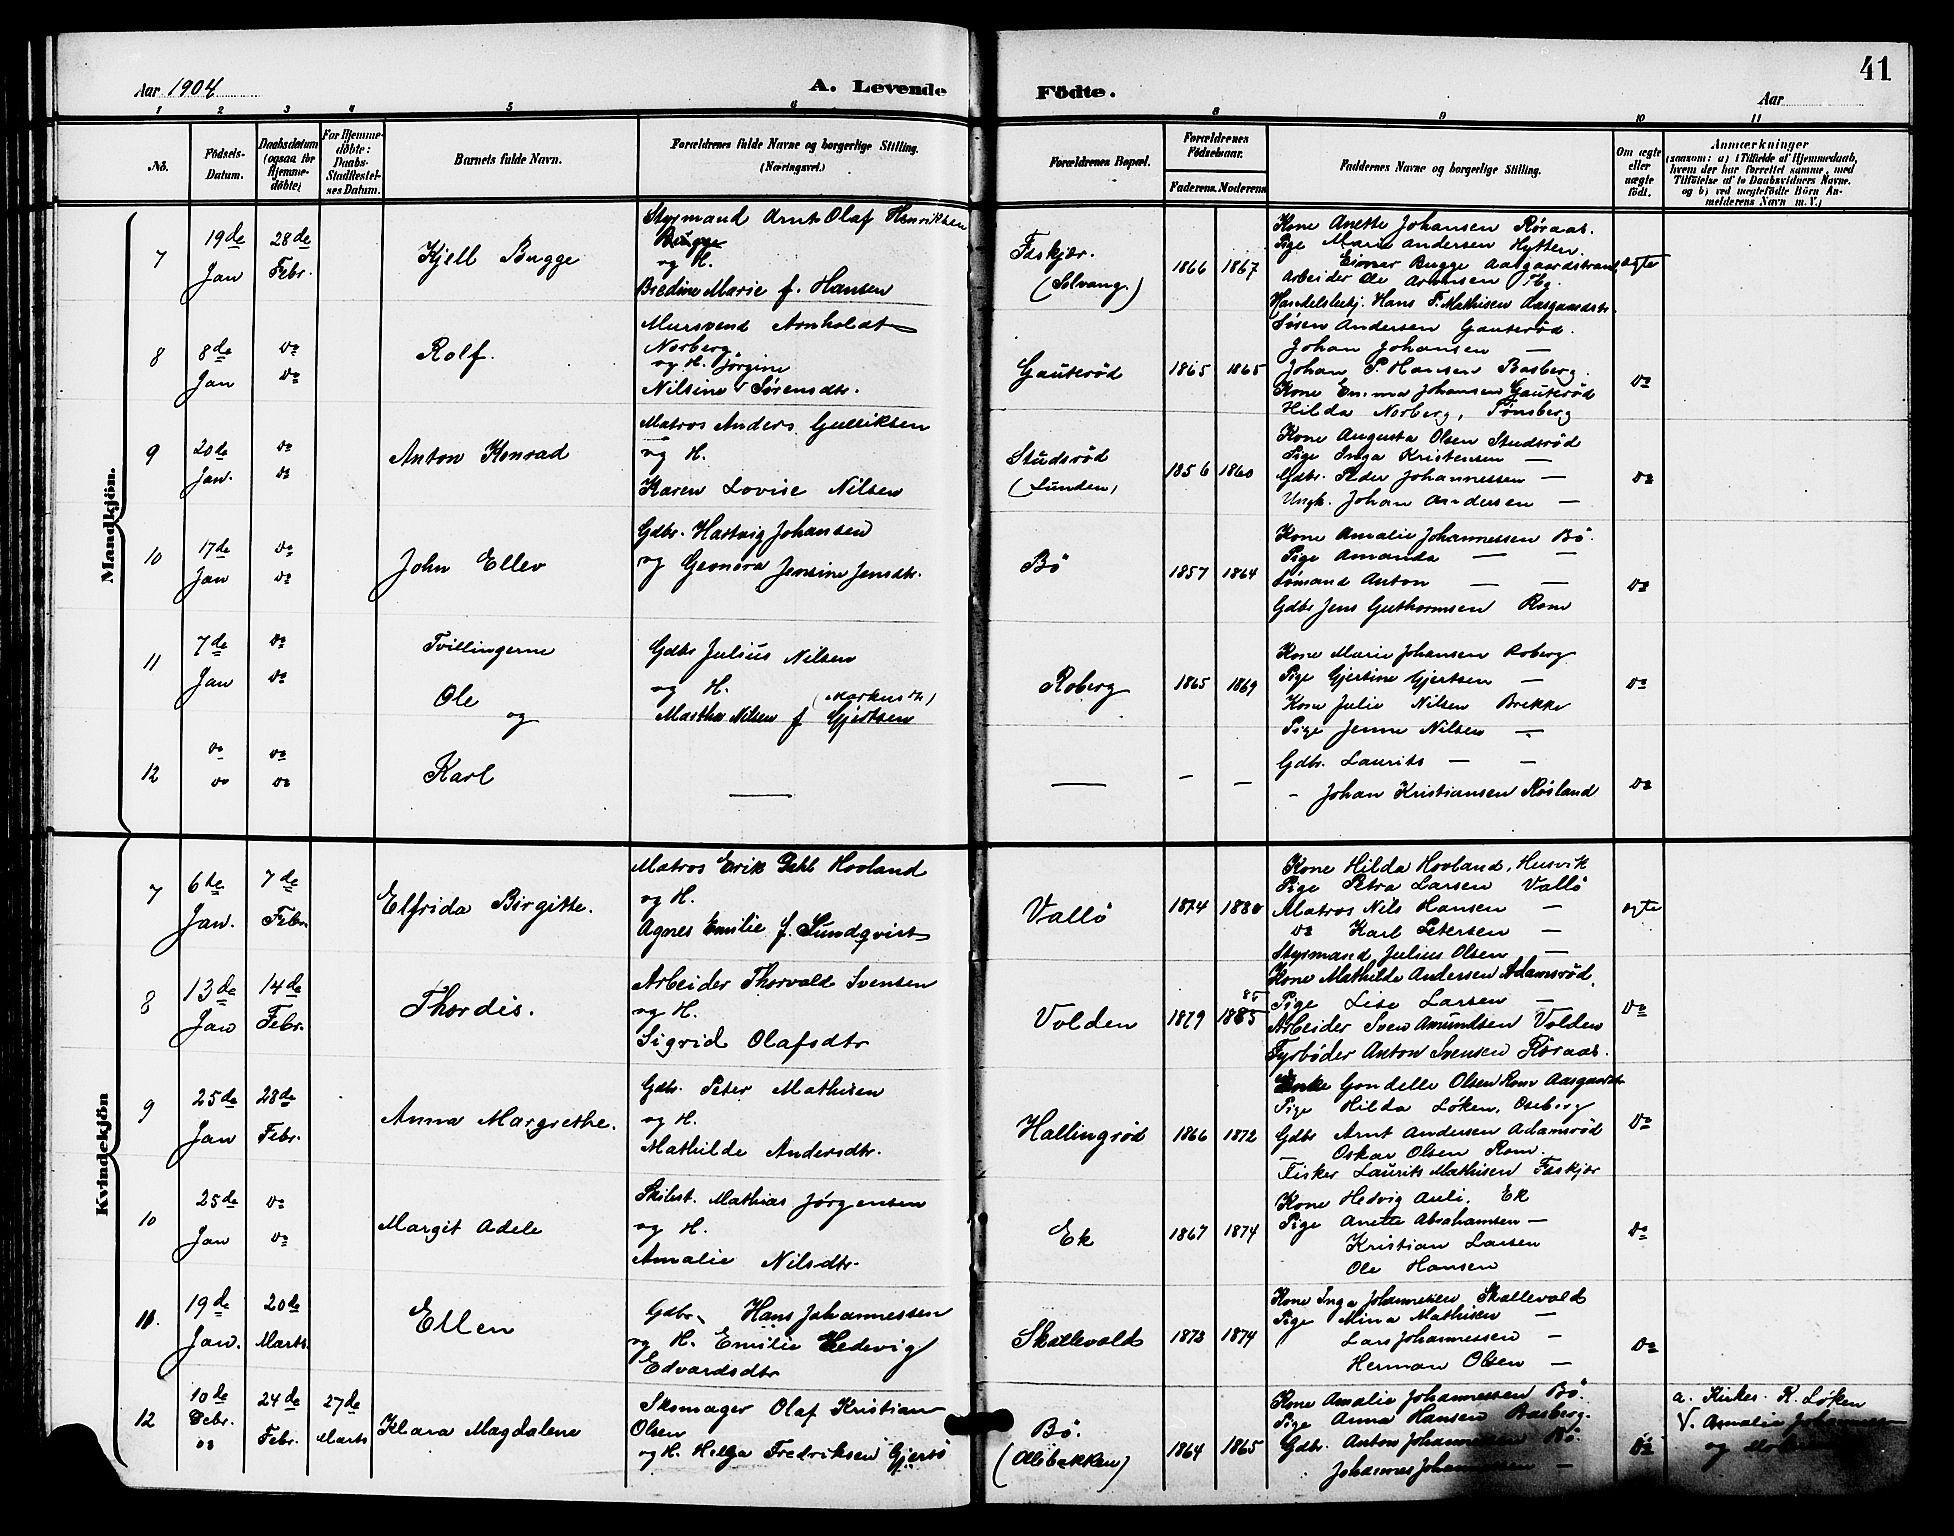 Aar 1904
A. Levende
Födte.
Aar
41
1 2 3 4 5 6 8 9 10 11
No.
Födsels-Datum.
Daabsdatum (ogsaa for Hjemme-döbte)
For Hjemme-döbte: Daabs-Stadfestel-ses Datum.
Barnets fulde Navn.
Forældrenes fulde Navne og borgerlige Stilling.
(Næringsvei.)
Forældrenes Bopæl.
Forældrenes Födselsaar.
Faderens. Moderens
Faddernes Navne og borgerlige Stilling.
Om ægte eller uægte födt.
Anmærkninger
(saasom: a) i Tilfælde af Hjemmedaab,
hvem der har forrettet samme, med
Tilföielse af to Daabsvidners Navne.
og b) ved uægtefödte Börn An-
melderens Navn m. V.)
Mandkjön.
7
19de Jan
28de Febr.
Kjell Bugge
Styrmand Arnt Olaf Henriksen
Bugge
og H.
Bredine Marie f. Hansen
(Solvang.)
1866 1867
Kone Anette Johansen Røraas.
Pige Marie Andersen Hytten.
Einar Bugge Aasgaardstrand
Arbeider Ole
Handelsbetj. Hans F. Mathisen Aasgaardstr.
ægte
8
8de Jan
do do
Rolf.
Mursvend Arnholdt
Norberg
og H. Jørgine
Nilsine Sørensdtr.
Gauterød
1865 1865
Søren Andersen Gauterød.
Johan Johansen —
Johan P. Hansen Basberg.
Kone Emma Johansen Gauterød
Hilda Norberg, Tønsberg
do
9
20de Jan.
do do
Anton Konrad
Matros Anders Gulliksen
og H.
Karen Lovise Nilsen
Studsrød
(Lunden)
1856 1860
Kone Augusta Olsen Studsrød
Pige Inga Kristensen —
Gdbr. Peder Johannessen —
Ungk. Johan Andersen —
do
10
17de Jan
do do
John Ellev
Gdbr. Hartvig Johansen
og Geonora Jensine Jensdtr.
Bö
1857 1864
Kone Amalie Johannessen Bö.
Pige Amanda — —
Sømand Anton — —
Gdbr Jens Guthormsen Rom
do
11
7de Jan
do do
Tvillingerne
Ole
og
Gdbr Julius Nilsen
og H. (Markusdtr)
Martha Nilsen f Gjertsen
Roberg
1865 1869
Kone Marie Johansen Roberg
Pige Gjertine Gjertsen —
Kone Julie Nilsen Brekke
Pige Jenne Nilsen —
do
12
do do
do do
Karl
—
—
— —
Gdbr. Laurits — —
- Johan Kristiansen Røsland
do
Kvindekjön
7
6de Jan.
7de Febr.
Elfrida Birgitte.
Matros Erik Hovland
og H.
Agnes Emilie f. Sundqvist
Vallö
1874 1880
Kone Hilda Hovland, Husvik
Pige Petra Larsen Vallö
Matros Nils Hansen —
do Karl Petersen —
Styrmand Julius Olsen —
ægte
8
13de Jan
14de Febr.
Thordis.
Arbeider Thorvald Svensen
og H.
Sigrid Olafsdtr
Volden
1879 1885
85
Kone Mathilde Andersen Adamsrød.
Pige Lise Larsen —
Arbeider Sven Amundsen Volden
Fyrbøder Anton Svensen Røraas.
do
9
25de Jan
28de Febr.
Anna Margrethe.
Gdbr. Peter Mathisen
og H.
Mathilde Andersdtr.
Hallingrød
1866 1872
Enke Gondelle Olsen Rom Aasgaardstr
Pige Hilda Løken, Oseberg
Gdbr Arnt Andersen Adamsrød
— Oskar Olsen Rom.
Fisker Laurits Mathisen
do
10
25de Jan
do do
Margit Adele
Skibst. Mathias Jørgensen
og H.
Amalie Nilsdtr.
Ek
1867 1874
Kone Hedvig Auli, Ek
Pige Anette Abrahamsen —
Kristian Larsen
Ole Hansen
do
11.
19de Jan.
20de Marts.
Ellen
Gdbr. Hans Johannessen
og H. Emilie Hedevig
Edvardsdtr
Skallevold
1873 1874
Kone Inga Johannesen Skallevold
Pige Mina Mathisen —
Lars Johannessen —
Herman Olsen —
do
12
10de Febr. do
24de Febr.
27de Marts
Klara Magdalene
Skomager Olaf Kristian
Olsen
og H. Helga Fredriksen Gjertsø
Bö.
(Olsbakken)
1864 1865
Kone Amalie Johannessen Bö.
Pige Anna Hansen Basberg.
Gdbr. Anton Johannessen Bö.
Johannes Johannessen —
do
a. Kirkes. K. Løken
V. Amalie Johannes-
og